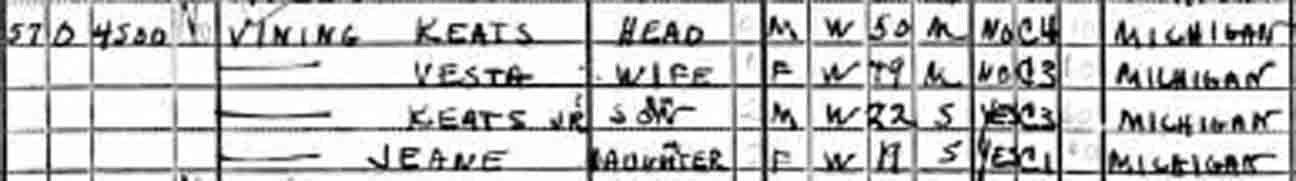 57 O 4500 VINING KEATS HEAD M W 50 M NO C4 MICHIGAN
VESTA WIFE F W 49 M NO C3 MICHIGAN
KEATS JR SON M W 22 S YES C3 MICHIGAN
JEANE DAUGHTER F W 19 S YES C1 MICHIGAN